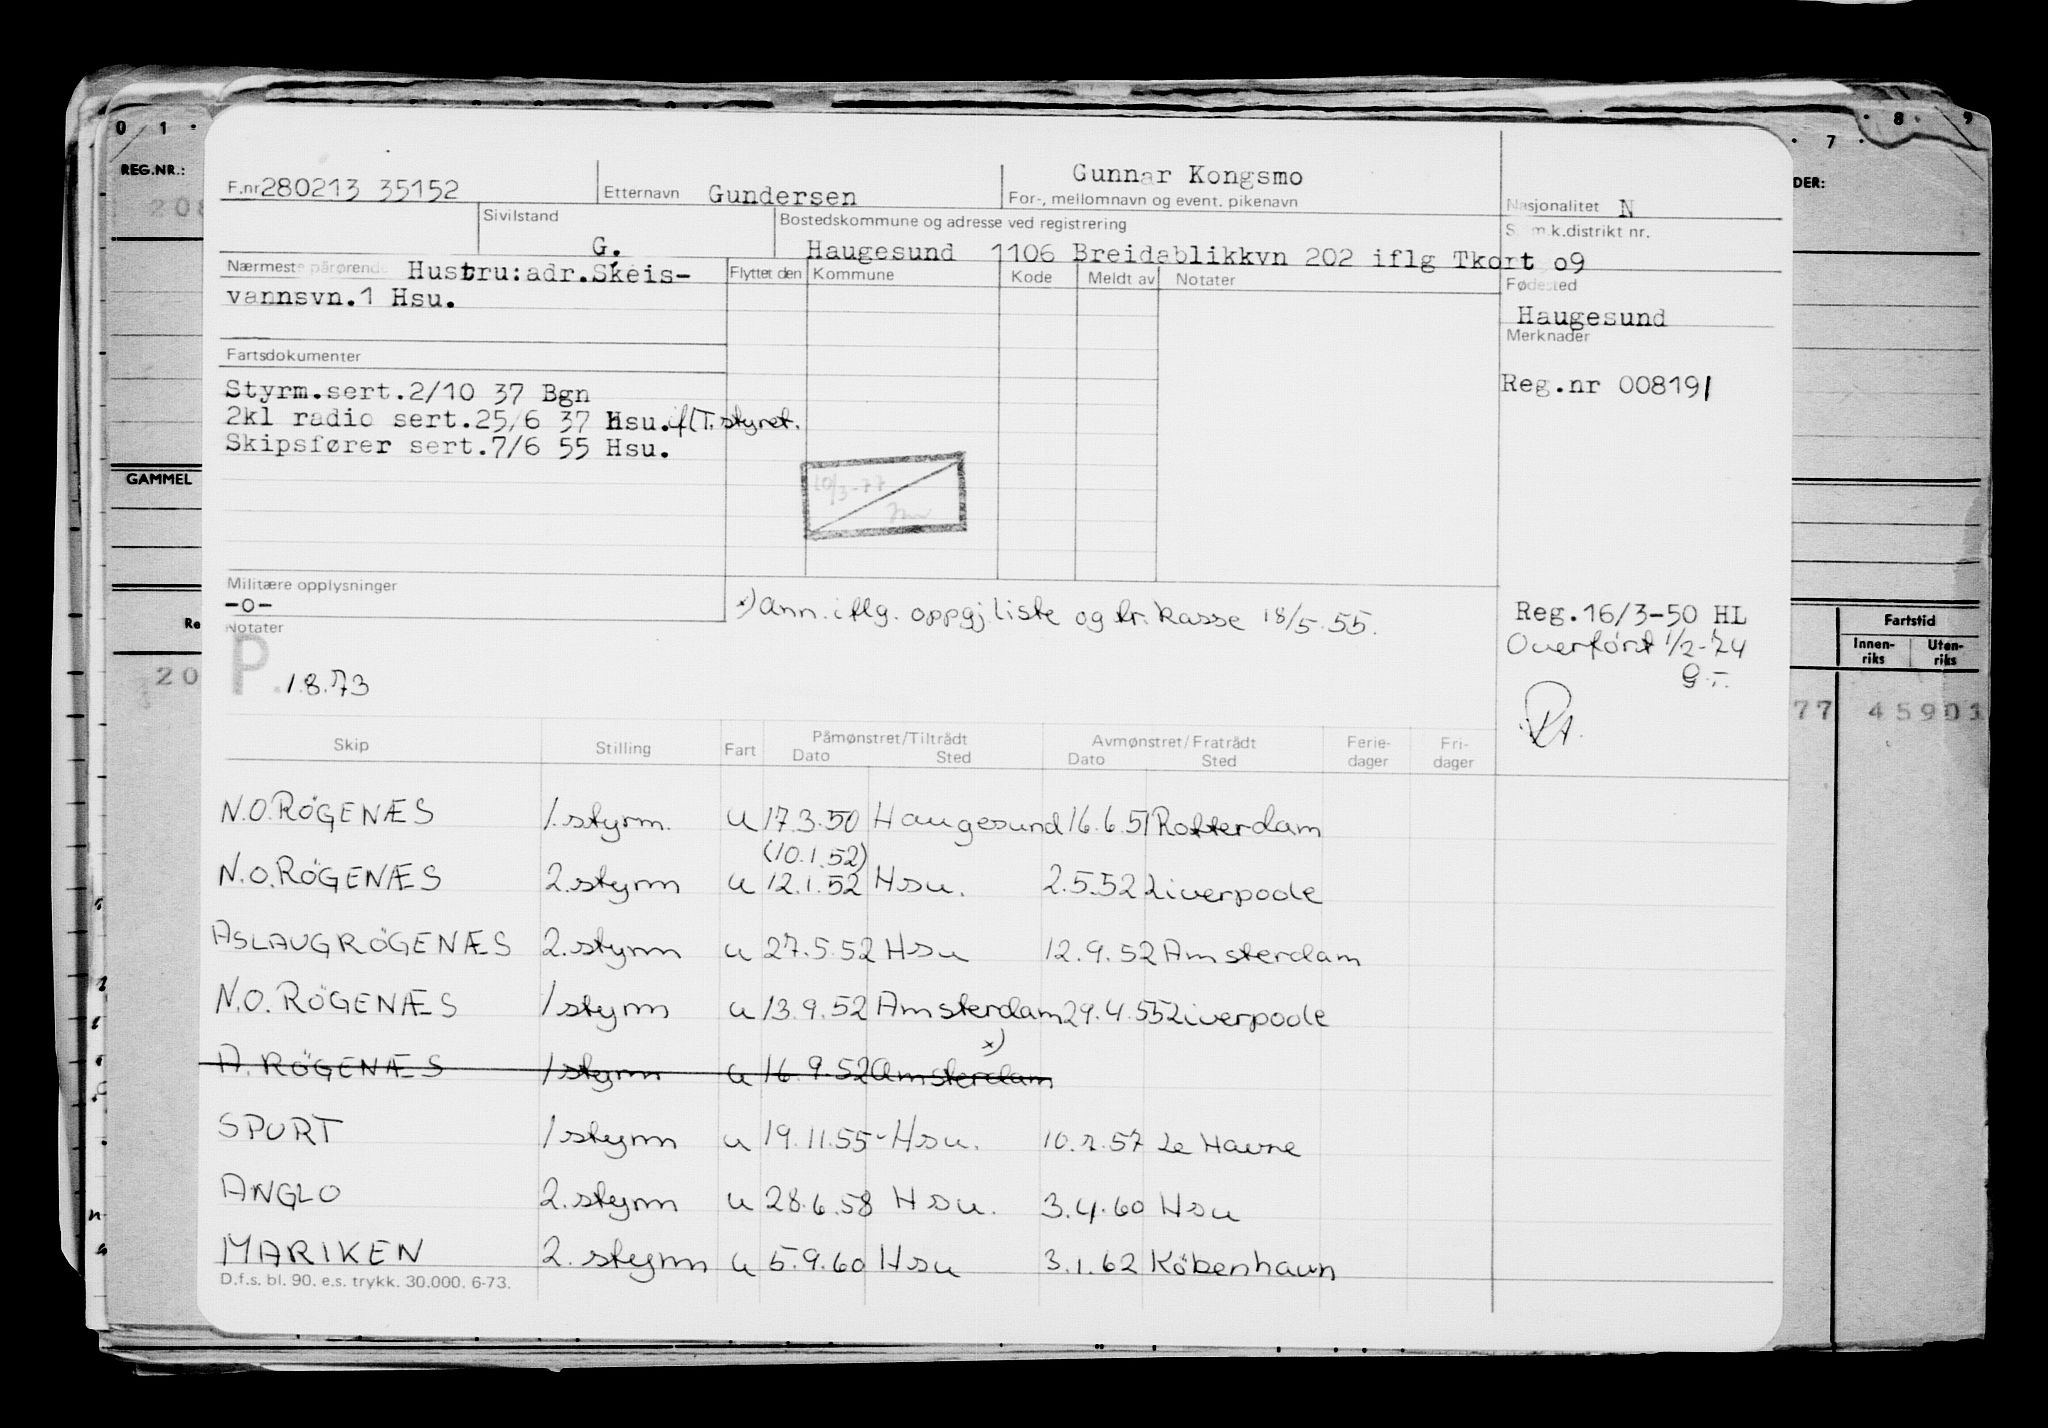 0 1 . . 7 . . 8 . 9
REG.NR.:
DER:
F.nr 280213 35152 Etternavn Gundersen Gunnar Kongsmo
For-, mellomnavn og event. pikenavn
Nasjonalitet N
Sivilstand G.
Bostedskommune og adresse ved registrering
Haugesund 1106 Breidablikkvn 202 iflg Tkort o9
S m.k.distrikt nr.
Nærmeste pårørende Hustru:adr.Skeis-
vannsvn.1 Hsu.
Flyttet den Kommune Kode Meldt av Notater
Fødested
Haugesund
Merknader
Reg.nr 008191
Fartsdokumenter
Styrm.sert.2/10 37 Bgn
2kl radio sert.25/6 37 Hsu. ifl T. styret.
Skipsfører sert.7/6 55 Hsu.
GAMMEL
10/3-77
Militære opplysninger
-o-
x) Ann. iflg. oppgj liste og tr. kasse 18/5. 55.
Reg.16/3-50 HL
Overført 1/2-74
Notater
P. 1.8.73
Re
20
Fartstid
Innen-riks Uten-riks
77 45901
Skip Stilling Fart Påmønstret/Tiltrådt Avmønstret/Fratrådt Ferie-dager Fri-dager
Dato Sted Dato Sted
N.O. RÖGENÆS 1.styrm. u 17.3.50 Haugesund 16.6.51 Rotterdam
(10.1.52)
N.O. RÖGENÆS 2.styrm u 12.1.52 Hsu. 2.5.52 Liverpoole
ASLAUG RÖGENÆS 2.styrm u 27.5.52 Hsu 12.9.52 Amsterdam
N.O. RÖGENÆS 1 styrm u 13.9.52 Amsterdam 29.4.55 Liverpoole
A. RÖGENÆS 1 styrm u 16.9.52 Amsterdam x)
SPURT 1 styrm u 19.11.55 Hsu. 10.7.57 Le Havre
ANGLO 2.styrm u 28.6.58 Hsu. 3.4.60 Hsu
MARIKEN 2.styrm u 5.9.60 Hsu 3.1.62 Köbenhavn
D.f.s. bl. 90. e.s. trykk. 30.000. 6-73.